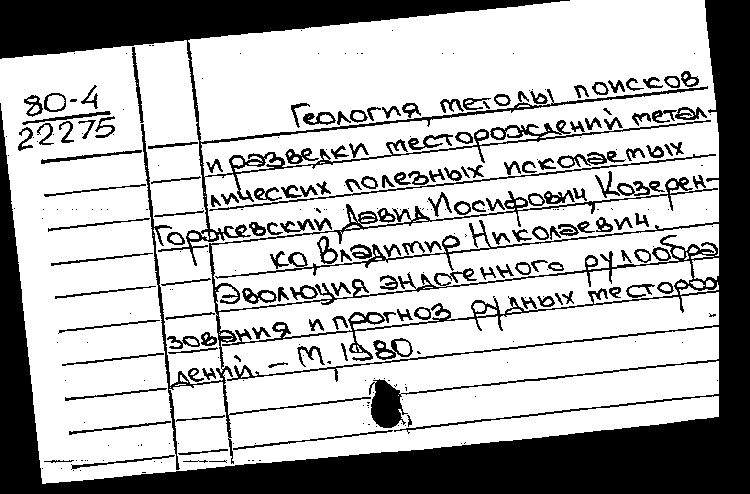 80-4
22275
Геология, методы поисков
и разведки месторождений метал-
лических полезных ископаемых
Горжевский, Давид Иосифович, Козерен-
ко, Владимир Николаевич.
Эволюция эндогенного рудообра
зования и прогноз рудных месторож
дений. - М., 1980.